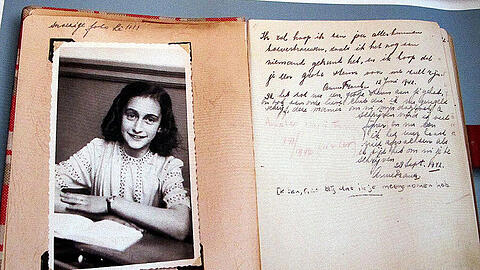 Ik zal hoop ik aan jou alles kunnen
toevertrouwen, zoals ik het nog aan
niemand gekund heb, en ik hoop dat
je een grote steun voor me zult zijn.
Anne Frank. 12 Juni 1942.
Ik heb tot nu toe een grote steun aan je gehad,
en ook aan onze lieve club die ik nu geregeld
schrijf, deze manier om in mijn dagboek te
schrijven vind ik veel
fijner en nu kan
ik het uur haast
niet afwachten als
ik tijd heb om in je te
schrijven
28 Sept. 1942.
Anne Frank.
Ik ben, o, zo blij dat ik je meegenomen heb